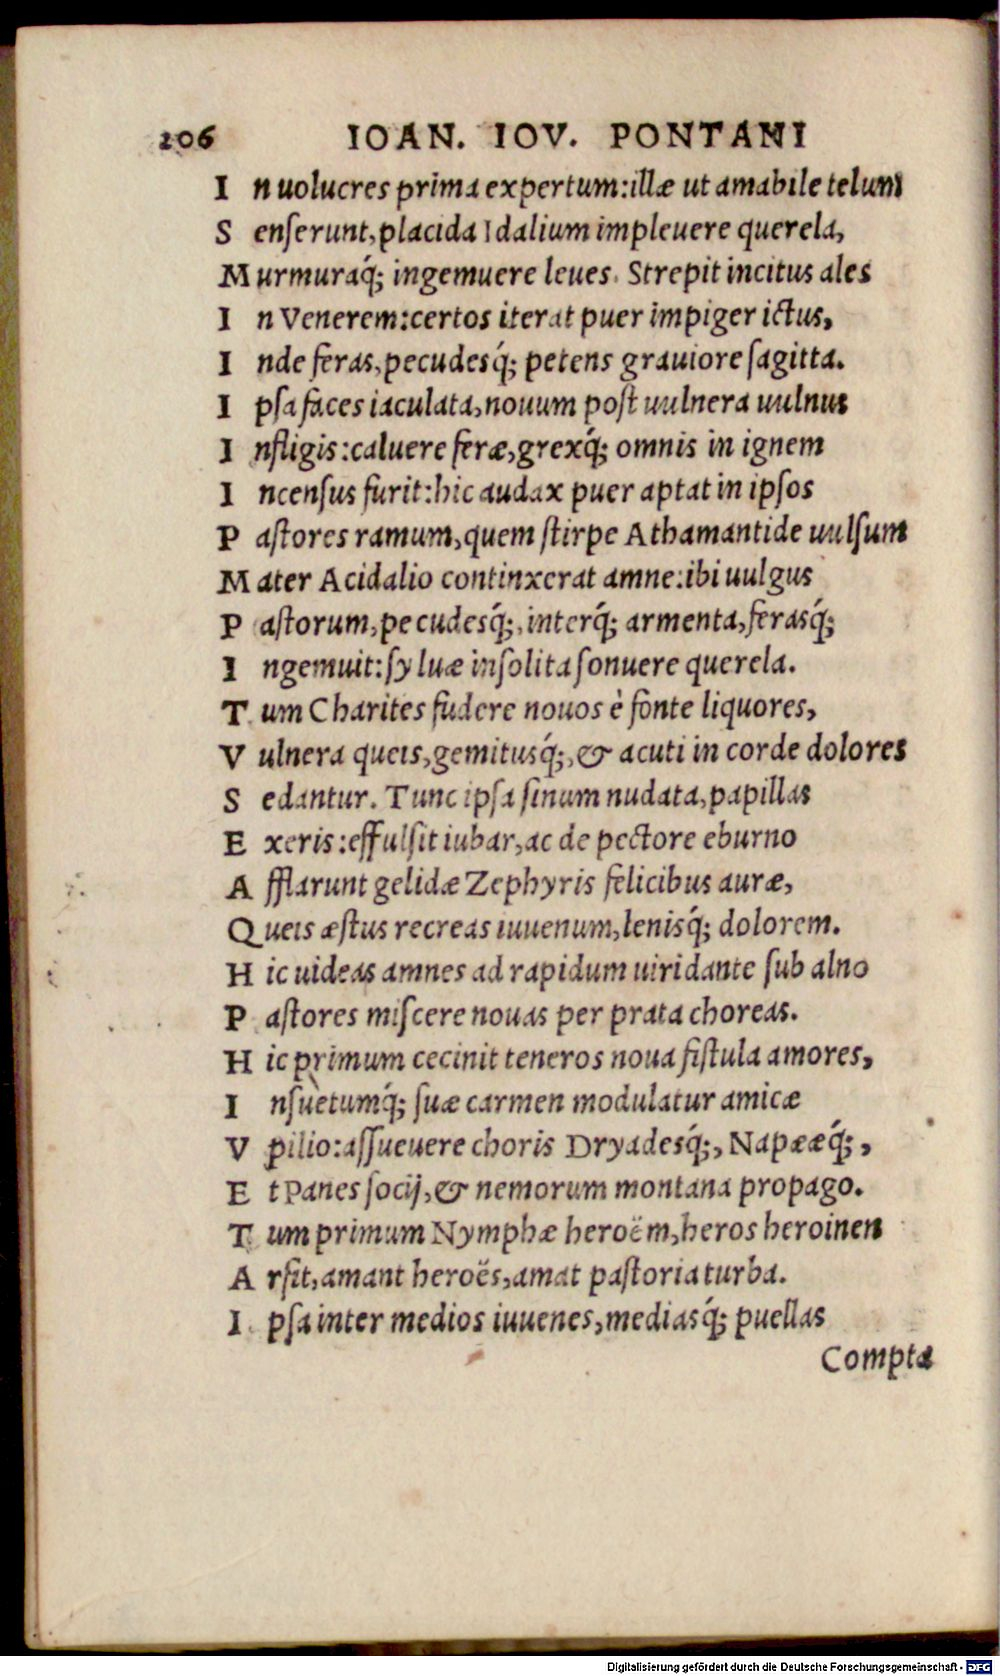 206 IOAN. IOV. PONTANI
I n uolucres prima expertum:illæ ut amabile telum
S enſerunt,placida Idalium impleuere querela,
M urmuraq́; ingemuere leues. Strepit incitus ales
I n Venerem:certos iterat puer impiger ictus,
I nde feras,pecudesq́; petens grauiore ſagitta.
I pſa faces iaculata,nouum poſt uulnera uulnus
I nfligis:caluere feræ,grexq́; omnis in ignem
I ncenſus furit:hic audax puer aptat in ipſos
P aſtores ramum,quem ſtirpe Athamantide uulſum
M ater Acidalio continxerat amne:ibi uulgus
P aſtorum,pecudesq́;,interq́; armenta,ferasq́;
I ngemuit:ſyluæ inſolita ſonuere querela.
T um Charites fudere nouos è fonte liquores,
V ulnera queis,gemitusq́;,& acuti in corde dolores
S edantur. Tunc ipſa ſinum nudata,papillas
E xeris:effulſit iubar,ac de pectore eburno
A fflarunt gelidæ Zephyris felicibus auræ,
Q ueis æſtus recreas iuuenum,lenisq́; dolorem.
H ic uideas amnes ad rapidum uiridante ſub alno
P aſtores miſcere nouas per prata choreas.
H ic primum cecinit teneros noua fiſtula amores,
I nſuetumq́; ſuæ carmen modulatur amicæ
V pilio:aſſueuere choris Dryadesq́;, Napææq́;,
E t Panes ſocij,& nemorum montana propago.
T um primum Nymphæ heroëm,heros heroinen
A rſit,amant heroës,amat paſtoria turba.
I pſa inter medios iuuenes,mediasq́; puellas
Compta
Digitalisierung gefördert durch die Deutsche Forschungsgemeinschaft - DFG